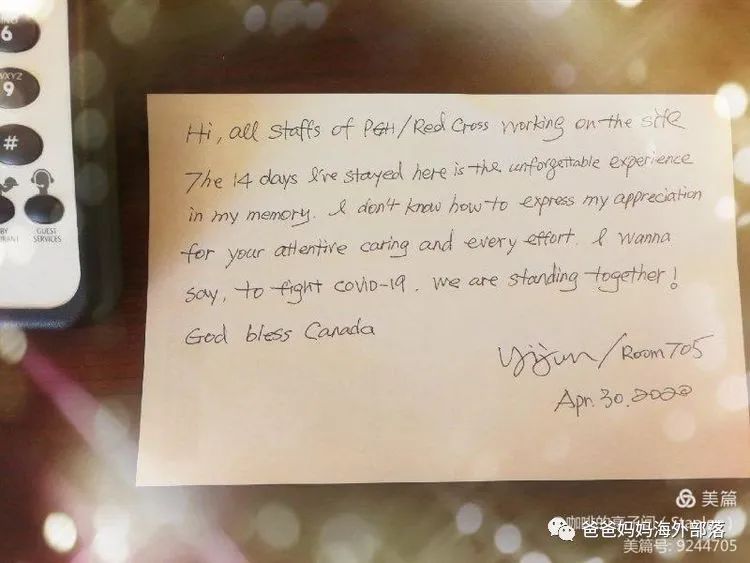 6
WXYZ
9
#
GUEST
SERVICES
Hi, all staffs of PGH/Red Cross working on the site
The 14 days I've stayed here is the unforgettable experience
in my memory. I don't know how to express my appreciation
for your attentive caring and every effort. I wanna
say, to fight COVID-19. we are standing together!
God bless Canada
Yijun/Room 705
Apr. 30. 2022
美篇
爸爸妈妈海外部落
美篇号: 9244705